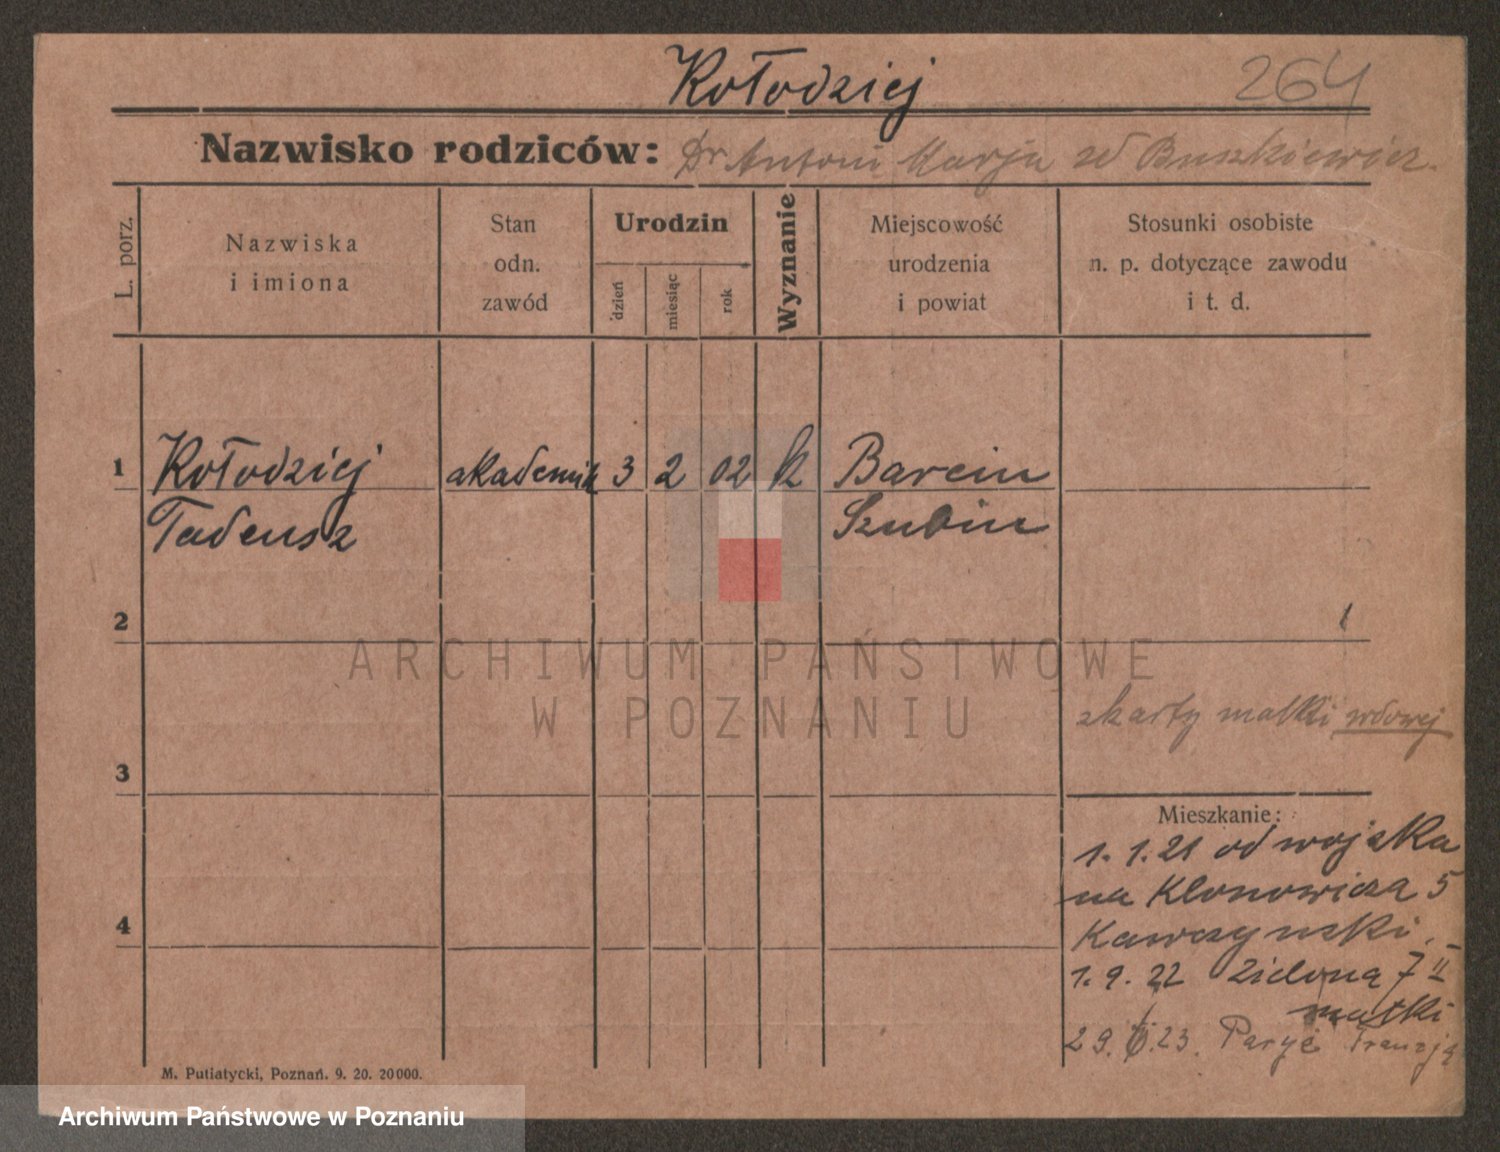 Kołodziej 264
Nazwisko rodziców: Dr Antoni Marja zd Buszkiewicz.
L. porz.
Nazwiska
i imiona
Stan
odn.
zawód
Urodzin
dzień
miesiąc
rok
Wyznanie
Miejscowość
urodzenia
i powiat
Stosunki osobiste
n. p. dotyczące zawodu
i t. d.
1 Kołodziej akademik 3 2 02 k Barcin
Tadeusz Szubin
2
ARCHIWUM PAŃSTWOWE
W POZNANIU
zkarty matki wdowej
3
Mieszkanie:
1. 1. 21 od wojska
na Klonowicza 5
Kawczynski
4
1. 9. 22 Zielona 7 II
matki
29. .23. Paryż Francją
M. Putiatycki, Poznań. 9. 20. 20000.
Archiwum Państwowe w Poznaniu